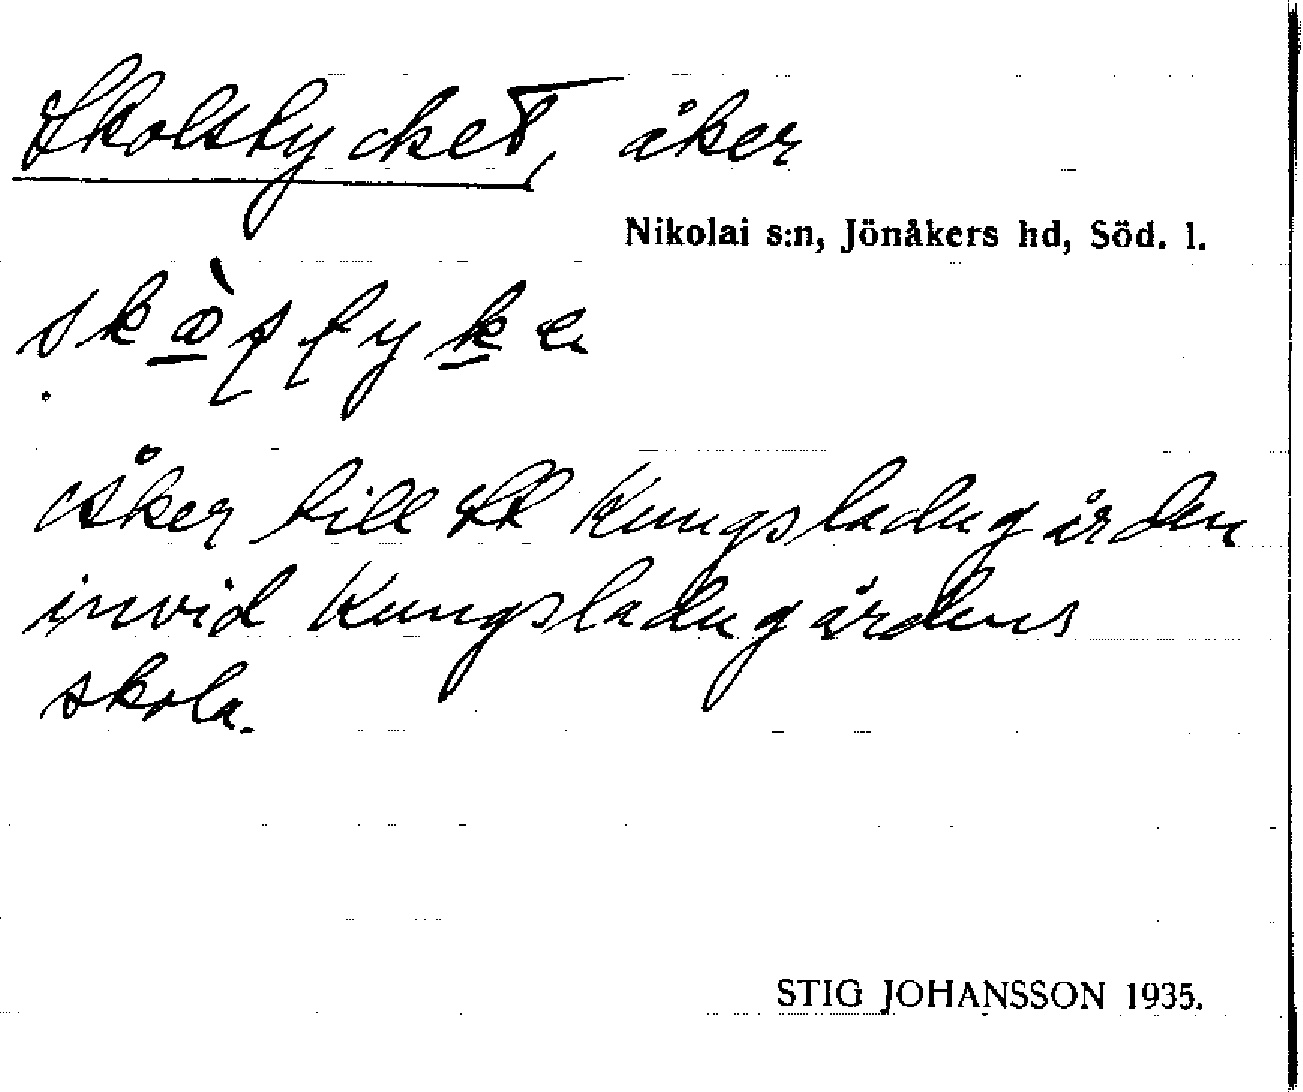 Skolstycket, åker
Nikolai s:n, Jönåkers hd, Söd. l.
Åker till Kungsladugården
invid Kungsladugårdens
skola.
STIG JOHANSSON 1935.